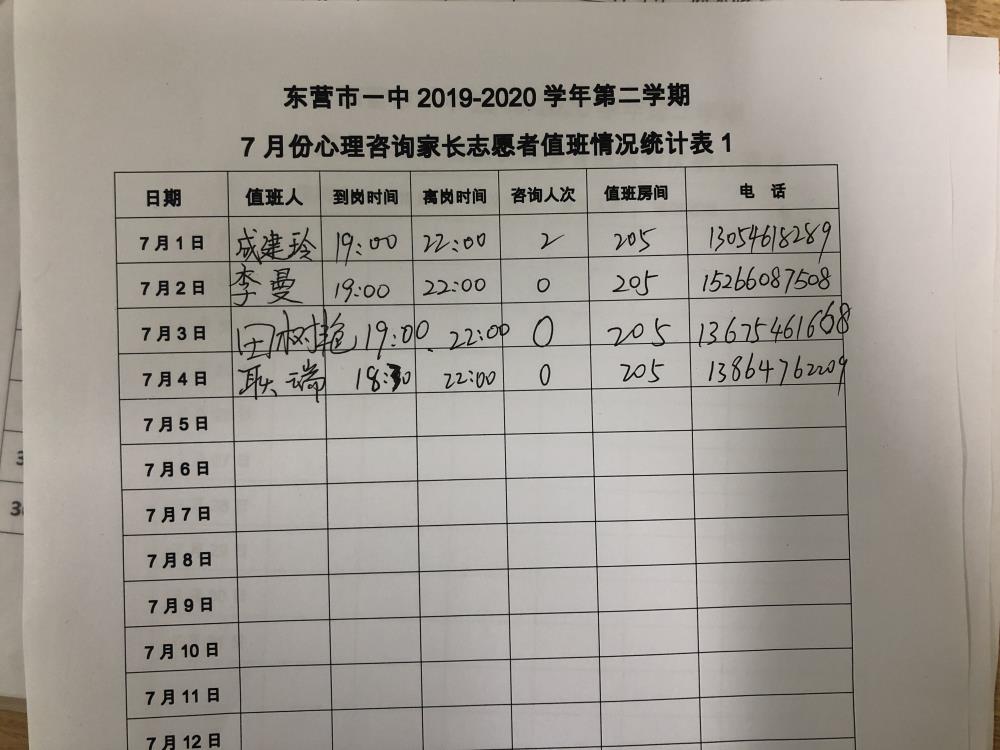 东营市一中 2019-2020 学年第二学期
7 月份心理咨询家长志愿者值班情况统计表 1
日期 值班人 到岗时间 离岗时间 咨询人次 值班房间 电 话
7 月 1 日 成建玲 19:00 22:00 2 205 13054618289
7 月 2 日 李曼 19:00 22:00 0 205 15266087508
7 月 3 日 田树艳 19:00 22:00 0 205 13675461668
7 月 4 日 耿瑞 18:30 22:00 0 205 13864762209
7 月 5 日
7 月 6 日
7 月 7 日
7 月 8 日
7 月 9 日
7 月 10 日
7 月 11 日
7 月 12 日